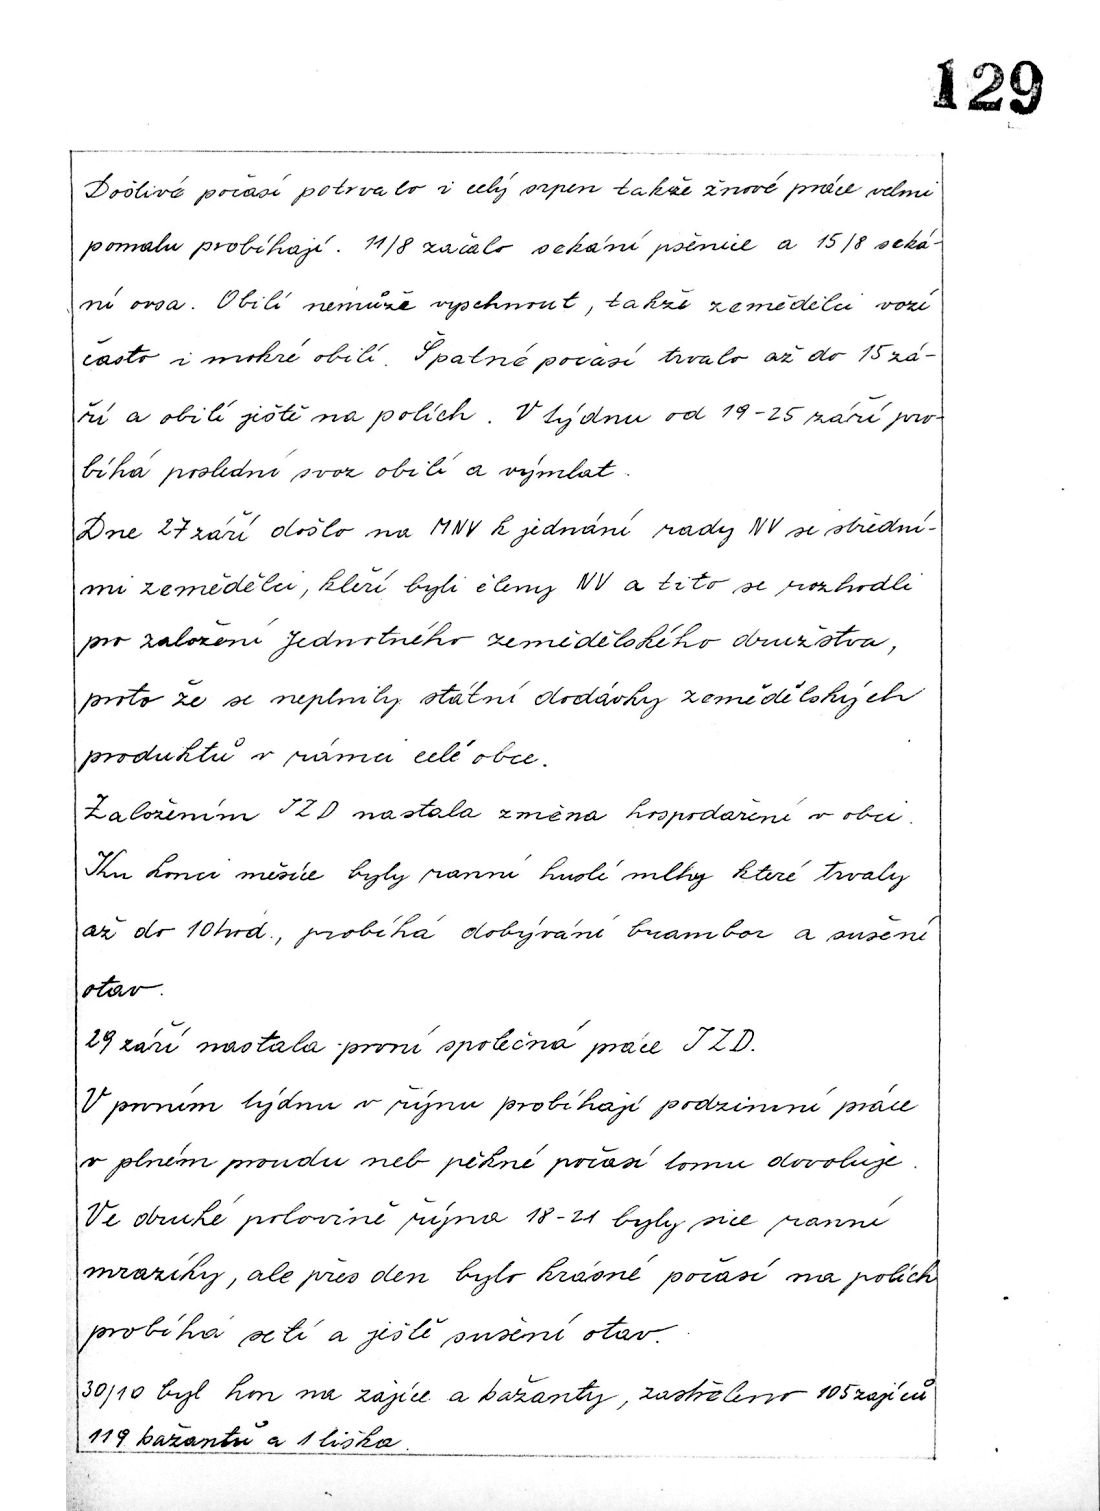 129
Doštivé počasí potrvalo i celý srpen takže žnové práce velmi
pomalu probíhají. 11/8 začalo sekání pšenice a 15/8 seká-
ní ovsa. Obilí nemůže vyschnout, takže zemědělci vozí
často i mokré obilí. Špatné počasí trvalo až do 15 zá-
ří a obilí jiště na polích. V týdnu od 19-25 září pro-
bíhá poslední svoz obilí a výmlat.
Dne 27 září došlo na MNV k jednání rady NV se střední-
mi zemědělci, kteří byli členy NV a tito se rozhodli
pro založení Jednotného zemědělského družstva,
proto že se neplnily státní dodávky zemědělských
produktů v rámci celé obce.
Založením JZD nastala změna hospodaření v obci.
Ku konci měsíce byly ranní husté mlhy které trvaly
až do 10 hod., probíhá dobývání brambor a sušení
otav.
29 září nastala první společná práce JZD.
V prvním týdnu v říjnu probíhají podzimní práce
v plném proudu neb pěkné počasí tomu dovoluje.
Ve druhé polovině října 18-21 byly sice ranní
mrazíky, ale přes den bylo krásné počasí na polích
probíhá setí a jiště sušení otav.
30/10 byl hon na zajíce a bažanty, zastřeleno 105 zajíců
119 bažantů a 1 liška.